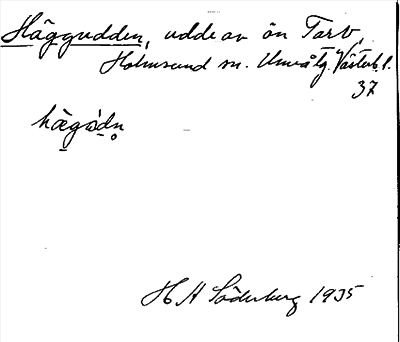 Häggudden, udde av ön Tarv,
Holmsund sn. Umeå tg. Västerb. l.
37
hæ̱gɷ̀dn̥
H A Söderberg 1935